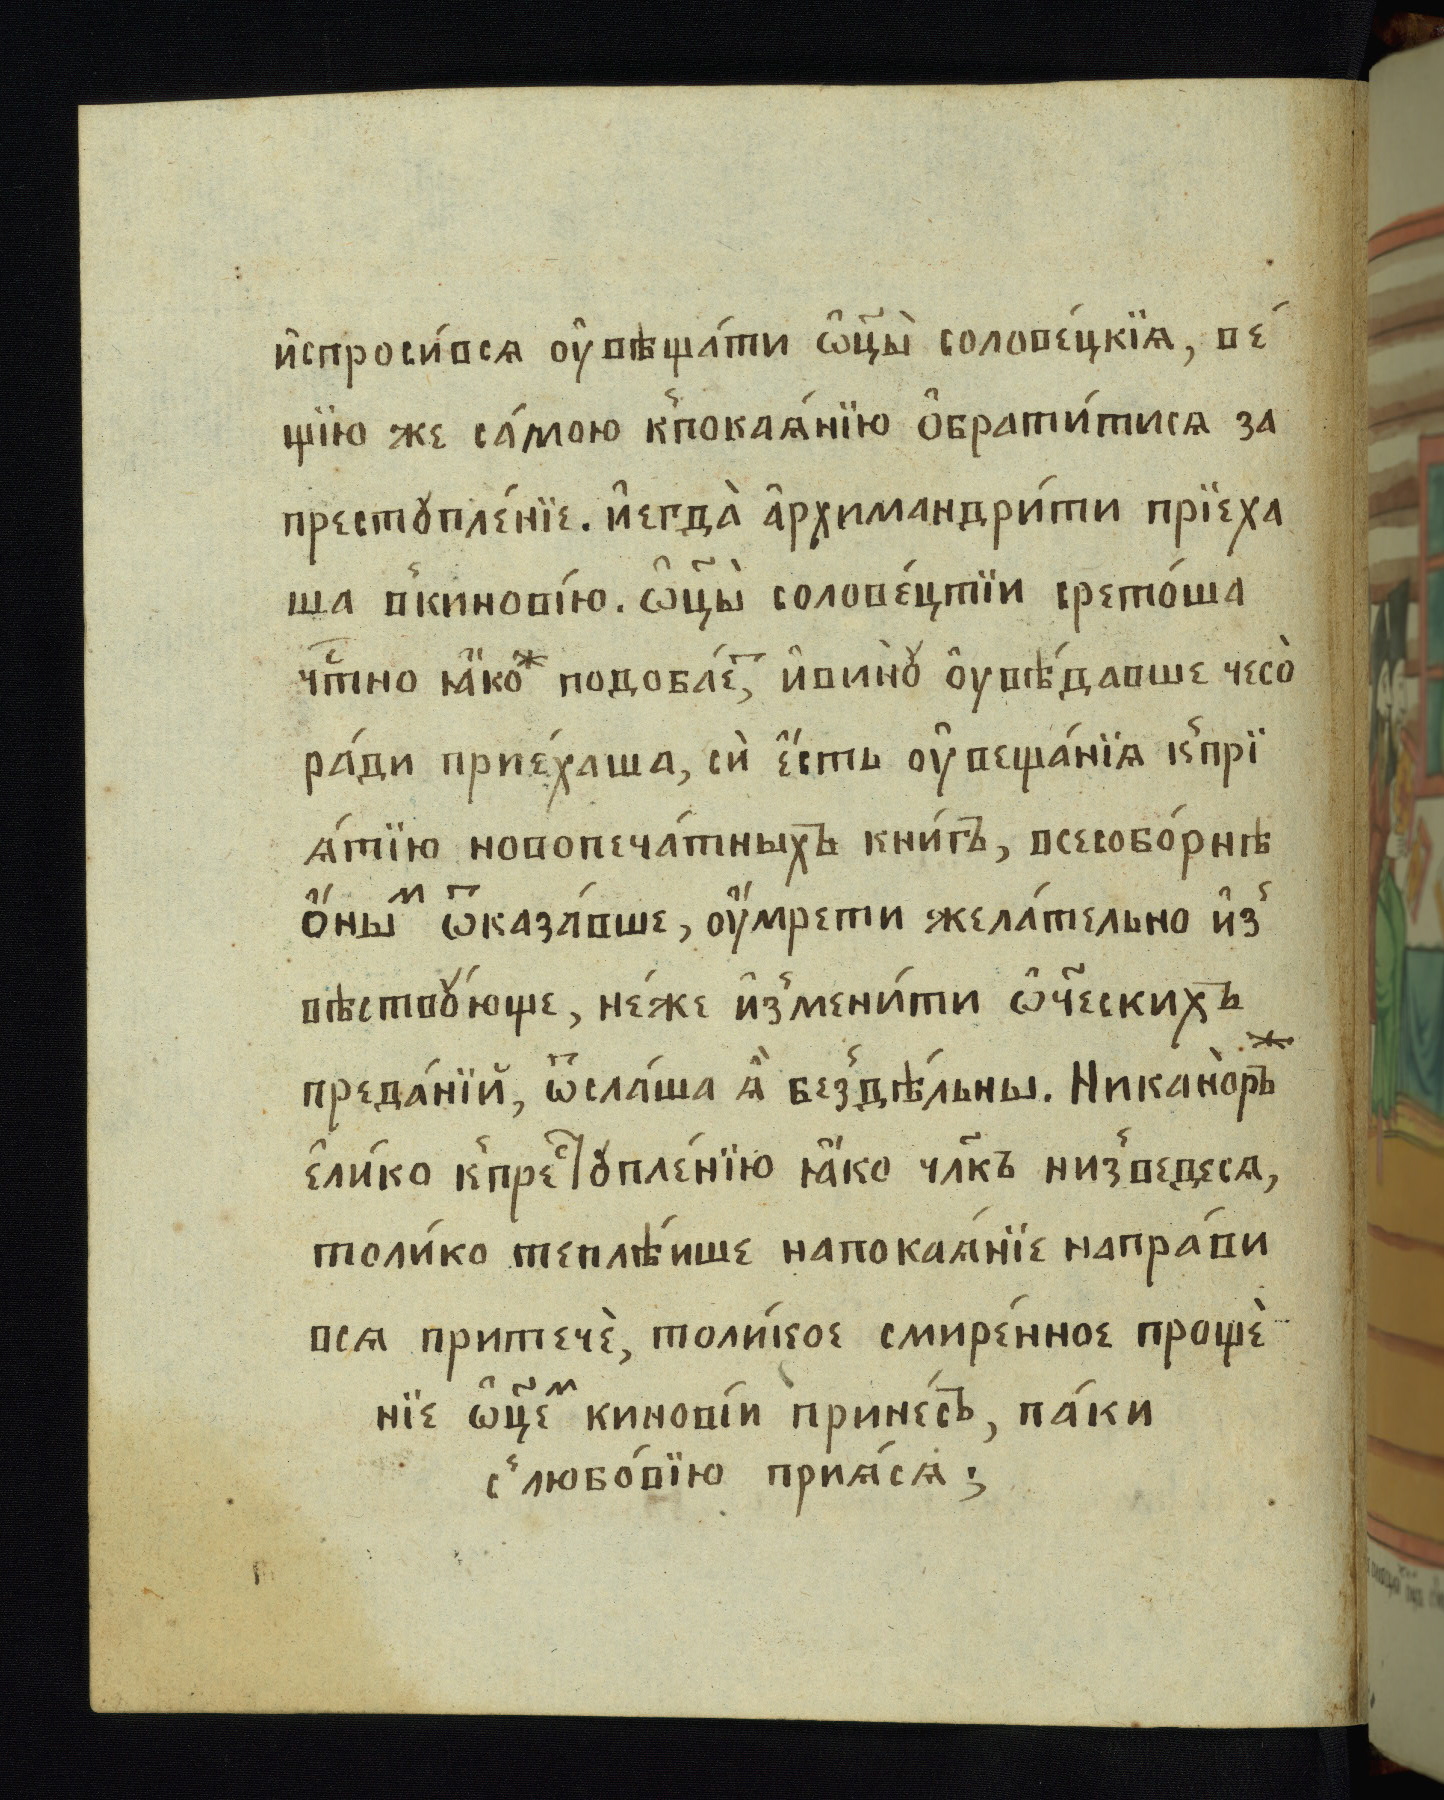 и҆спроси́всѧ ѹ҆вѣща́ти ѡ҆ц҃ы̀ солове́цкїѧ, ве́
щїю же са́мою к̾покаѧ́нїю ѻ҆брати́тисѧ за
престꙋпле́нїе. и҆егда̀ а҆рхимандри́ти прїеха
ша в̾кинові́ю. ѡ҆ц҃ы̀ солове́цтїи срето́ша
чⷭ҇тно ꙗ҆́коⷤ подоба́еⷮ, и҆винꙋ̀ ѹ҆вѣ́давше чесо̀
ра́ди прие́хаша, сѝ є҆́сть ѹ҆веща́нїѧ к̾прї
ѧ́тїю новопеча́тныхъ кни́гъ, всесобо́рнѣ
ѻ҆́ныⷨ ѿказа́вше, ѹ҆́мрети жела́тельно и҆з̾
вѣствꙋ́юще, не́же и҆з̾мени́ти ѡ҆ч҃ескихъ
преда́нїй, ѿсла́ша ѧ҆̀ без̾дѣ́льны. Никано̀рⷤъ
є҆ли́ко к̾преⷭ҇тꙋпле́нїю ꙗ҆́ко чл҃къ низ̾ведесѧ,
толи́ко теплѣ́ише напокаѧ́нїе напра́ви
всѧ притечѐ, толи́кое смире́нное прощѐ
нїе ѡ҆ц҃еⷨ кинові́и прине́съ, па́ки
с̾любо́вїю приѧ́сѧ;